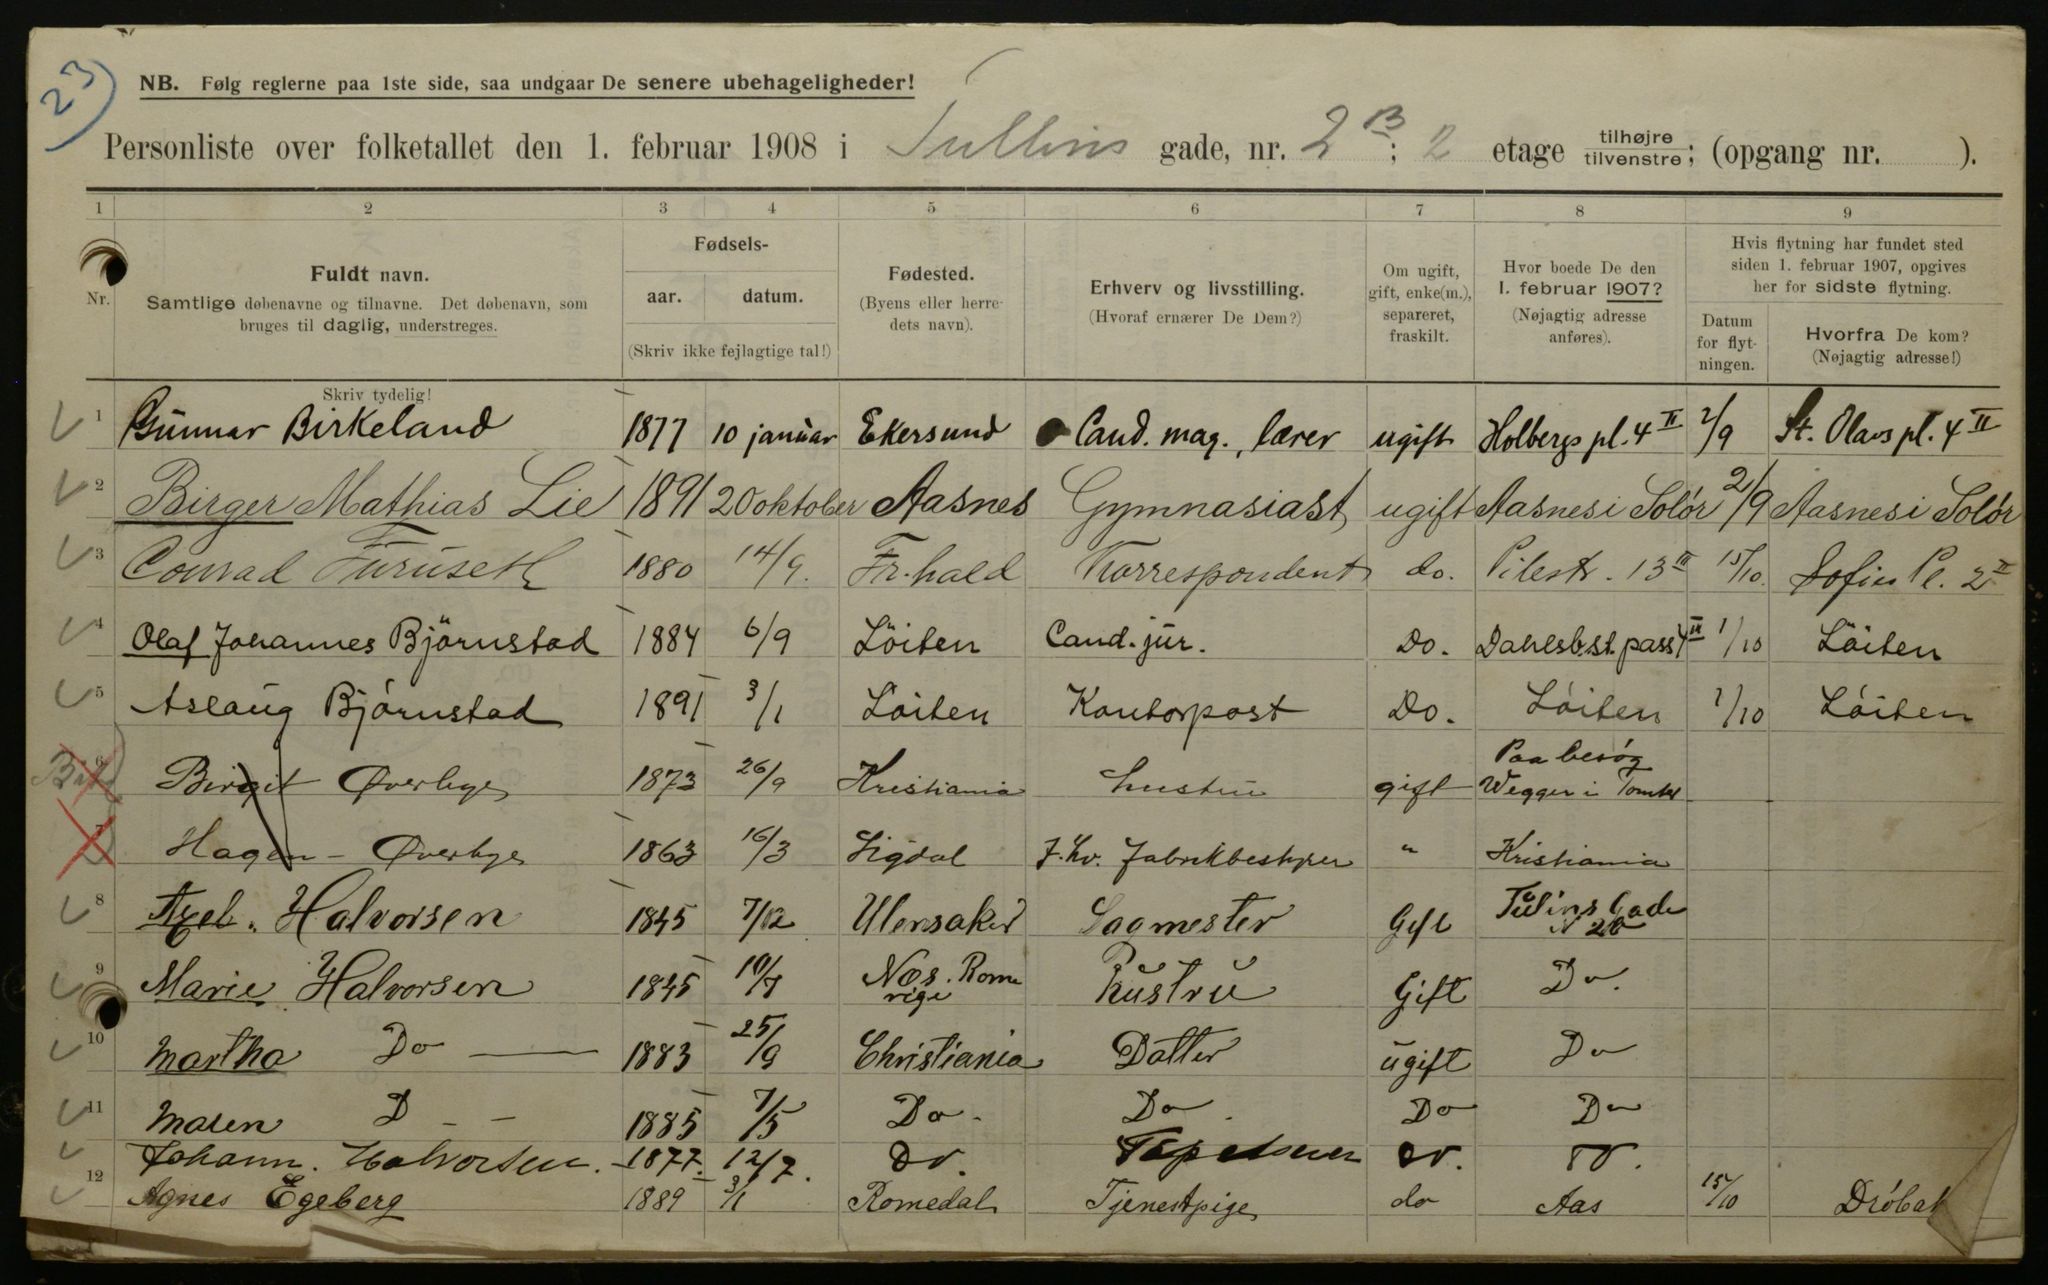 23)
NB. Følg reglerne paa 1ste side, saa undgaar De senere ubehageligheder!
Personliste over folketallet den 1. februar 1908 i Tullins gade, nr. 2 B; 2 etage tilhøjre/tilvenstre; (opgang nr. ).
1 2 3 4 5 6 7 8 9
Nr.
Fuldt navn.
Samtlige døbenavne og tilnavne. Det døbenavn, som
bruges til daglig, understreges.
Skriv tydelig!
Fødsels-
aar. datum.
(Skriv ikke fejlagtige tal!)
Fødested.
(Byens eller herre-
dets navn).
Erhverv og livsstilling.
(Hvoraf ernærer De Dem?)
Om ugift,
gift, enke(m.),
separeret,
fraskilt.
Hvor boede De den
1. februar 1907?
(Nøjagtig adresse
anføres).
Hvis flytning har fundet sted
siden 1. februar 1907, opgives
her for sidste flytning.
Datum
for flyt-
ningen.
Hvorfra De kom?
(Nøjagtig adresse!)
1 Gunnar Birkeland 1877 10 januar Ekersund Cand. mag., lærer ugift Holbergs pl. 4 II 2/9 St. Olavs pl. 4 II
2 Birger Mathias Lie 1891 20 oktober Aasnes Gymnasiast ugift Aasnes i Solør 2/9 Aasnes i Solør
3 Conrad Furuseth 1880 14/9. Fr.hald Korrespondent do. Pilestr. 13 III 15/10. Sofies Pl. 2 II
4 Olaf Johannes Björnstad 1884 6/9 Löiten Cand. jur. Do. 1/10 Löiten
5 Aslaug Bjørnstad 1891 3/1 Löiten Kontorpost Do. Løiten 1/10 Løiten
6 Birgit Øverbye 1873 26/9 Kristiania hustru gift Paa besøg
Wegger i
7 Hagen - Øverbye 1863 16/3 Sigdal Fabrikbestyrer " Kristiania
8 Axel. Halvorsen 1845 7/12 Ulensaker Sagmester Gift Tulins Gade
N 2b
9 Marie Halvorsen 1845 10/7 Nes. Rome
rige Hustru Gift Do.
10 Martha Do — 1883 25/9 Christiania Datter ugift Do
11 Maren D - - 1885 7/5 Do - Do. Do Do
Johann. Halvorsen. 1877. 12/7. Do. Tapetserer Do. Do.
12 Agnes Egeberg 1889 3/1 Romedal Tjenestpige do Aas 15/10 Drøbak